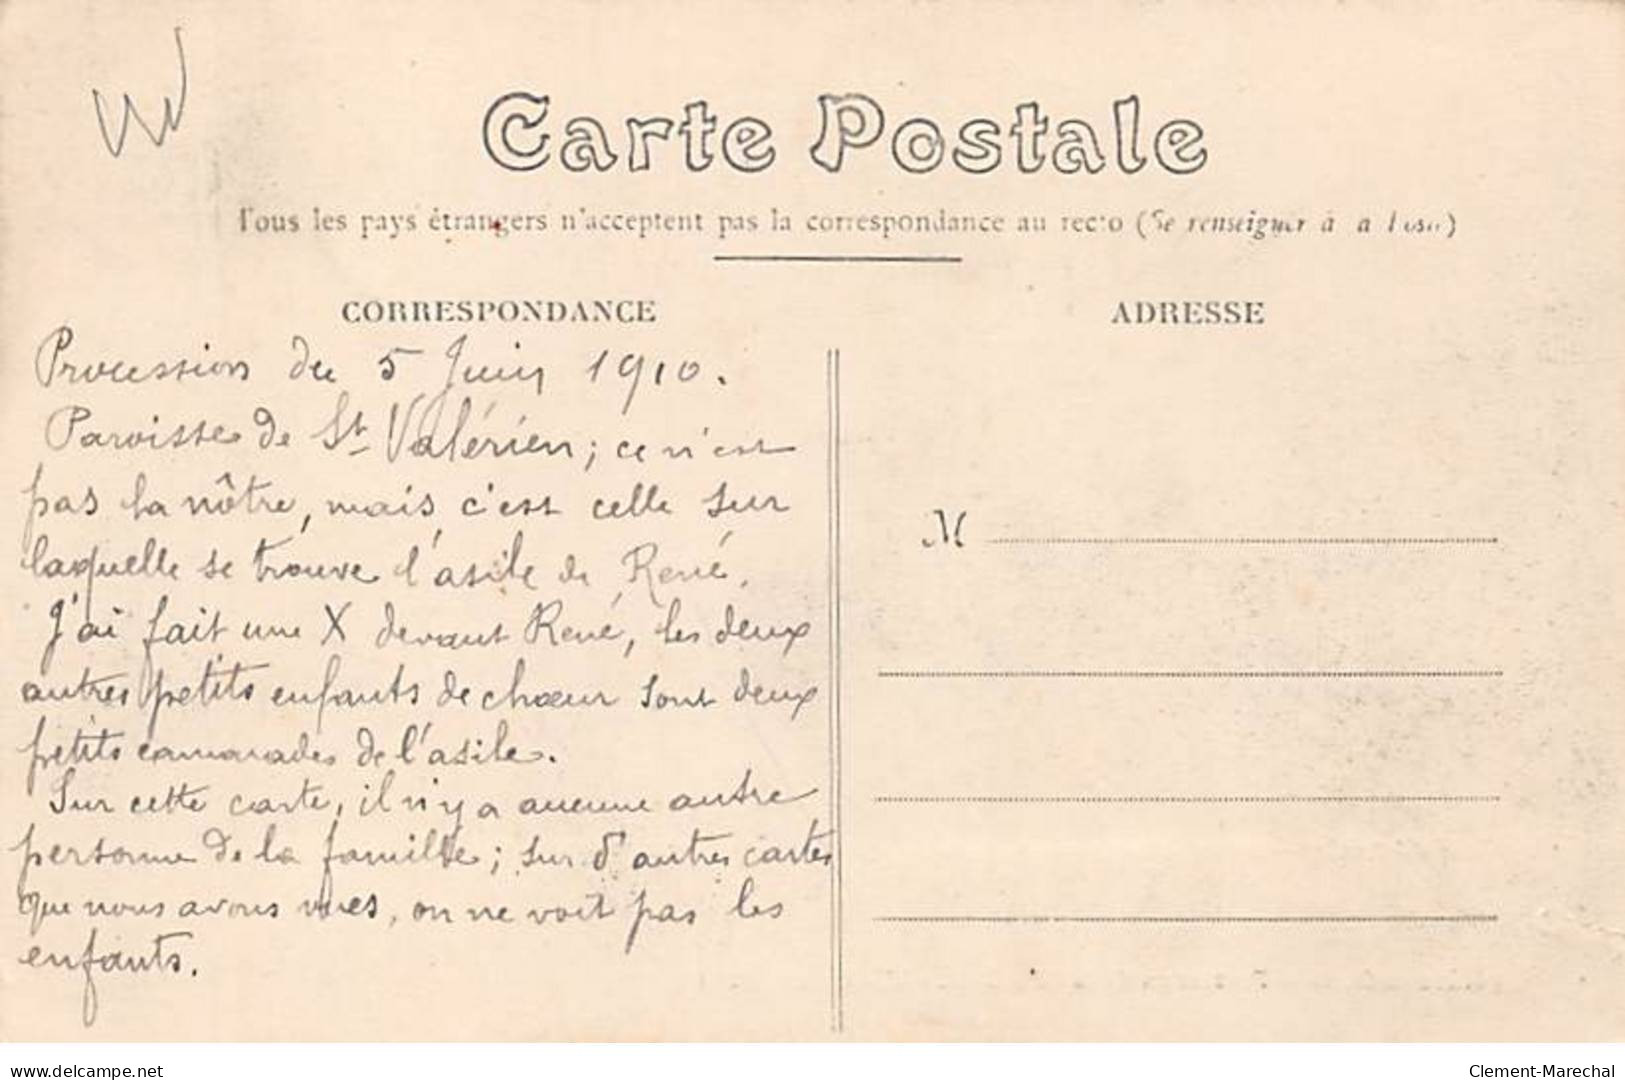 Carte Postale
Tous les pays étrangers n'acceptent pas la correspondance au recto (Se renseigner à la Poste)
CORRESPONDANCE
ADRESSE
Procession du 5 Juin 1910.
Paroisse de St Valérien; ce n'est
pas la nôtre, mais c'est celle sur
laquelle se trouve l'asile de René.
J'ai fait une X devant René, les deux
autres petits enfants de chœur sont deux
petits camarades de l'asile.
Sur cette carte, il n'y a aucune autre
personne de la famille; sur d'autres cartes
que nous avons vues, on ne voit pas les
enfants.
M
delcampe.net
Clement-Marechal